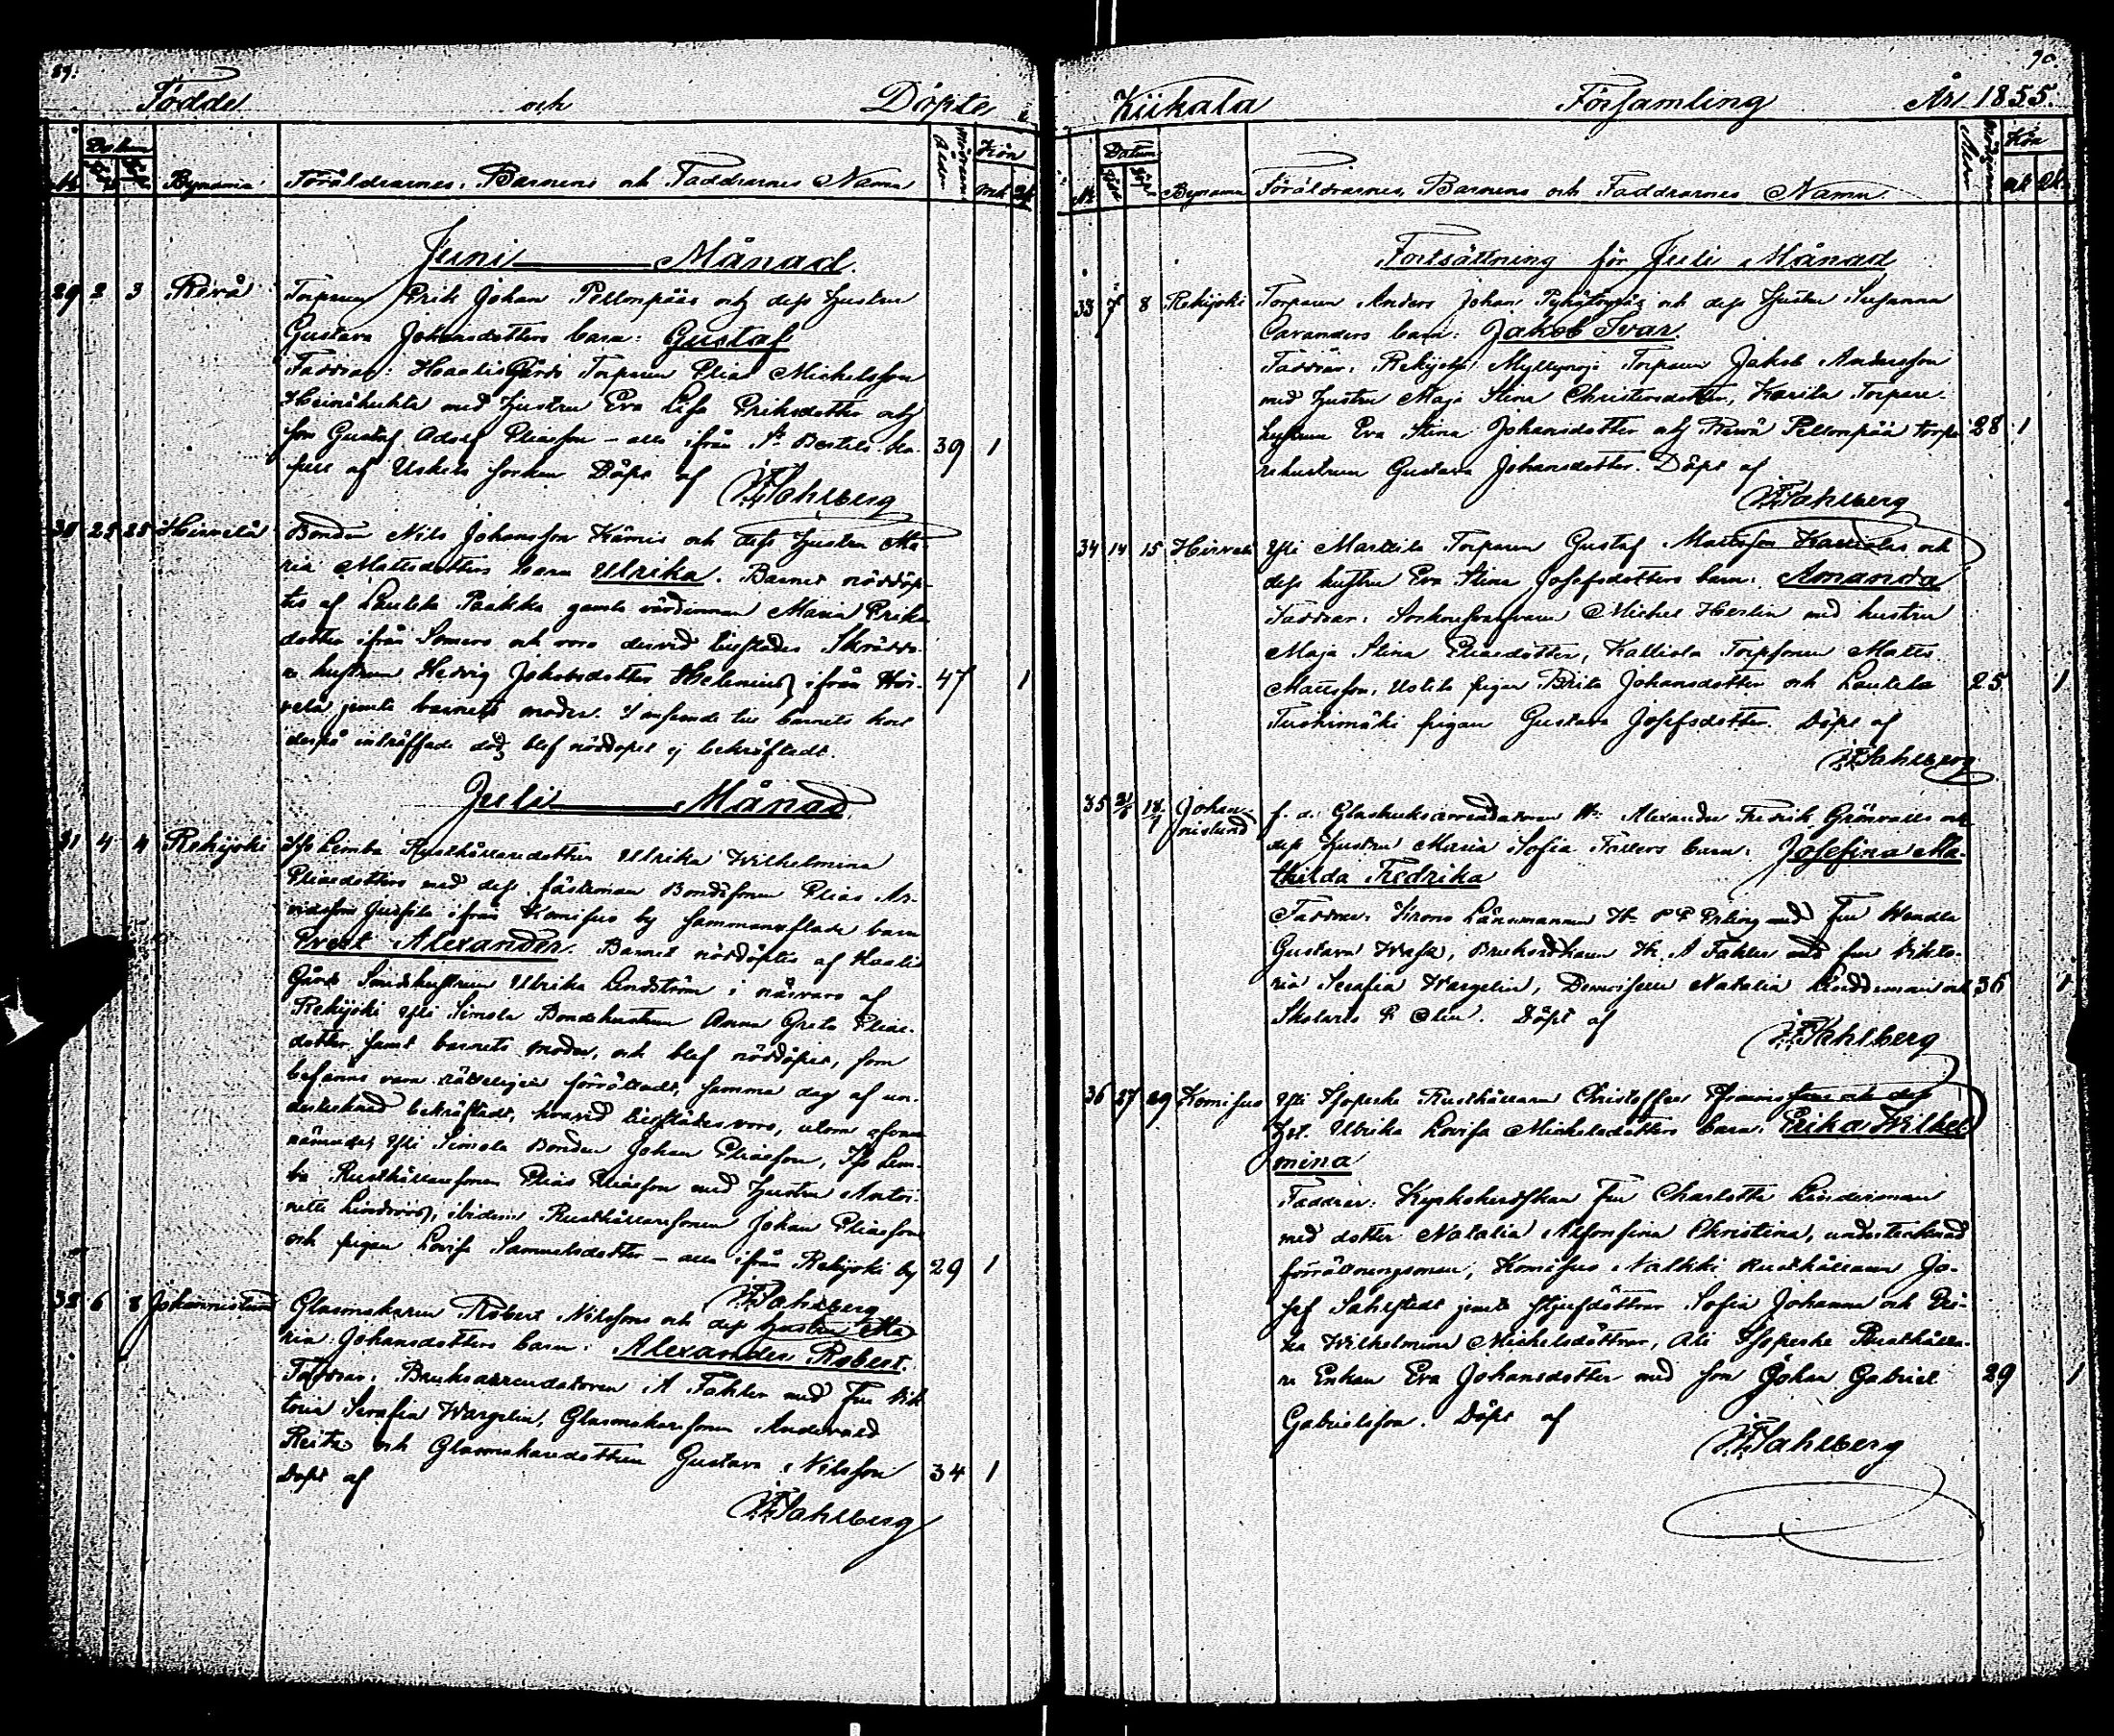 89.
Födde och Döpte i
No Datum Bynamn Föräldrarnes, Barnens och Faddrarnes Namn Mödrarnes Ålder Kön
Mk Qk
Juni Månad.
29 2 3 Rewå Torparen Erik Johan Pellonpääs och dess hustru
Gustava Johansdotters barn: Gustaf
Faddrar: Haalis Gårds Torparen Elias Michelsson
med hustru Eva Lisa Eriksdotter och
son Gustaf Adolf Eliasson – alla ifrån St Bertels ka- 39 1
pell af Uskela socken Döpt af
Sahlberg
30 25 25 Hirvelä Bonden Nils Johansson Kämis och dess hustru Ma-
ria Mattsdotters barn Ulrika. Barnet nöddöp-
tes af Lautela Paakka gamla värdinnan Maria Eriks
dotter ifrån Somero och voro dervid tillstädes Skrädda-
re hustrun Hedvig Jakobsdotter Helenius ifrån Hir- 47 1
velä jemte barnets moder. I anseende till barnets kort
derpå inträffade död, blef nöddopet ej bekräftadt.
Juli Månad.
31 4 4 Rekijoki Iso Lemba Rusthållaredottren Ulrika Wilhelmina
Eliasdotters med dess fästeman Bondesonen Elias Ar-
vidsson ifrån Komisuo by sammanaflade barn
Evert Alexander. Barnet nöddöptes af Haalis
Gårds Smidshustrun Ulrika Lindström i närvaro af
Rekijoki Yli Simola Bondehustrun Anna Greta Elias-
dotter samt barnets moder, och blef nöddopet, som
befanns vara rätteligen förrättadt, samma dag af un-
dertecknad bekräftadt, hvarvid tillstädes voro, utom ofvan
nämnde, Yli Simola Bonden Johan Eliasson, Iso Lem-
ba Rusthållaresonen Elias Eliasson med hustru Antoi-
nette Lindroos, ibidem Rusthållaresonen Johan Eliasson
och pigan Lovisa Samuelsdotter – alla ifrån Rekijoki by 29 1
Sahlberg
32 6 8 Johannislund Glasmakaren Robert Nilssons och dess hustru Ma-
ria Johansdotters barn: Alexander Robert.
Faddrar: Bruksarrendatoren A Fahler med Fru Vik-
toria Serafia Wargelin, Glasmakaresonen
Reitz och Glasmakaredottren Gustava Nilsson 34 1
Döpt af
Sahlberg
90.
Kiikala Församling År 1855.
No Datum Född Döpt Bynamn Föräldrarnes, Barnens och Faddrarnes Namn Mödrarnes Ålder Kön
Mk Qk
Fortsättning för Juli Månad
33 7 8 Rekijoki Torparen Anders Johan och dess hustru Susanna
Caranders barn: Jakob Ivar.
Faddrar: Rekijoki Myllynoja Torparen Jakob Andersson
med hustru Maja Stina Christersdotter, Karila Torpare-
hustrun Eva Stina Johansdotter och Rewå Pellonpää torpa- 28 1
rehustrun Gustava Johansdotter. Döpt af
Sahlberg
34 14 15 Hirvelä Yli Marttila Torparen Gustaf Mattsson och
dess hustru Eva Stina Josefsdotters barn: Amanda
Faddrar: Michel Herlin med hustru
Maja Stina Eliasdotter, Kalliola Torpsonen Matts
Mattsson, pigan Brita Johansdotter och Lautela 25 1
pigan Gustava Josefsdotter. Döpt af
Sahlberg
35 21/6 18/7 Johan-
nislund f. d. Glasbruksarrendatoren Hr Alexander Fredrik Grönvalls och
dess hustru Maria Sofia barn: Josefina Ma-
thilda Fredrika
Faddrar: Krono Länsmannen Hr med Fru Wendla
Gustava, Brukspatron Hr A Fahler med fru Vikto-
ria Serafia Wargelin, Demoiselle Natalia Linderman och 36 1
Döpt af
Sahlberg
36 27 29 Komisuo Yli Isopeska Rusthållaren Christoffer och dess
hst. Ulrika Lovisa Michelsdotters barn: Erika Wilhel-
mina
Faddrar: Kyrkoherdskan Fru Charlotta Linderman
med dotter Natalia Alfonsina Christina, undertecknad
förrättningsman, Komisuo Nalkki Rusthållaren Jo-
sef Sahlstedt jemte styfdöttrar Sofia Johanna och Eri-
ka Wilhelmina Michelsdöttrar, Ali Isopeska Rusthålla-
re Enkan Eva Johansdotter med son Johan Gabriel 29 1
Gabrielsson. Döpt af
Sahlberg